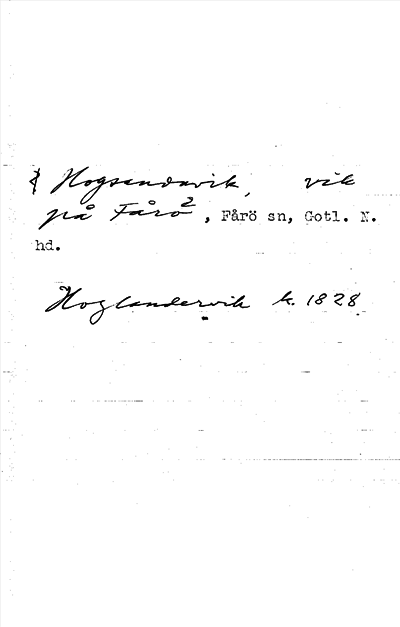 Hogsandavik, vik
på Fårö 2, Fårö sn, Gotl. N.
hd.
Hoglandervik k. 1828